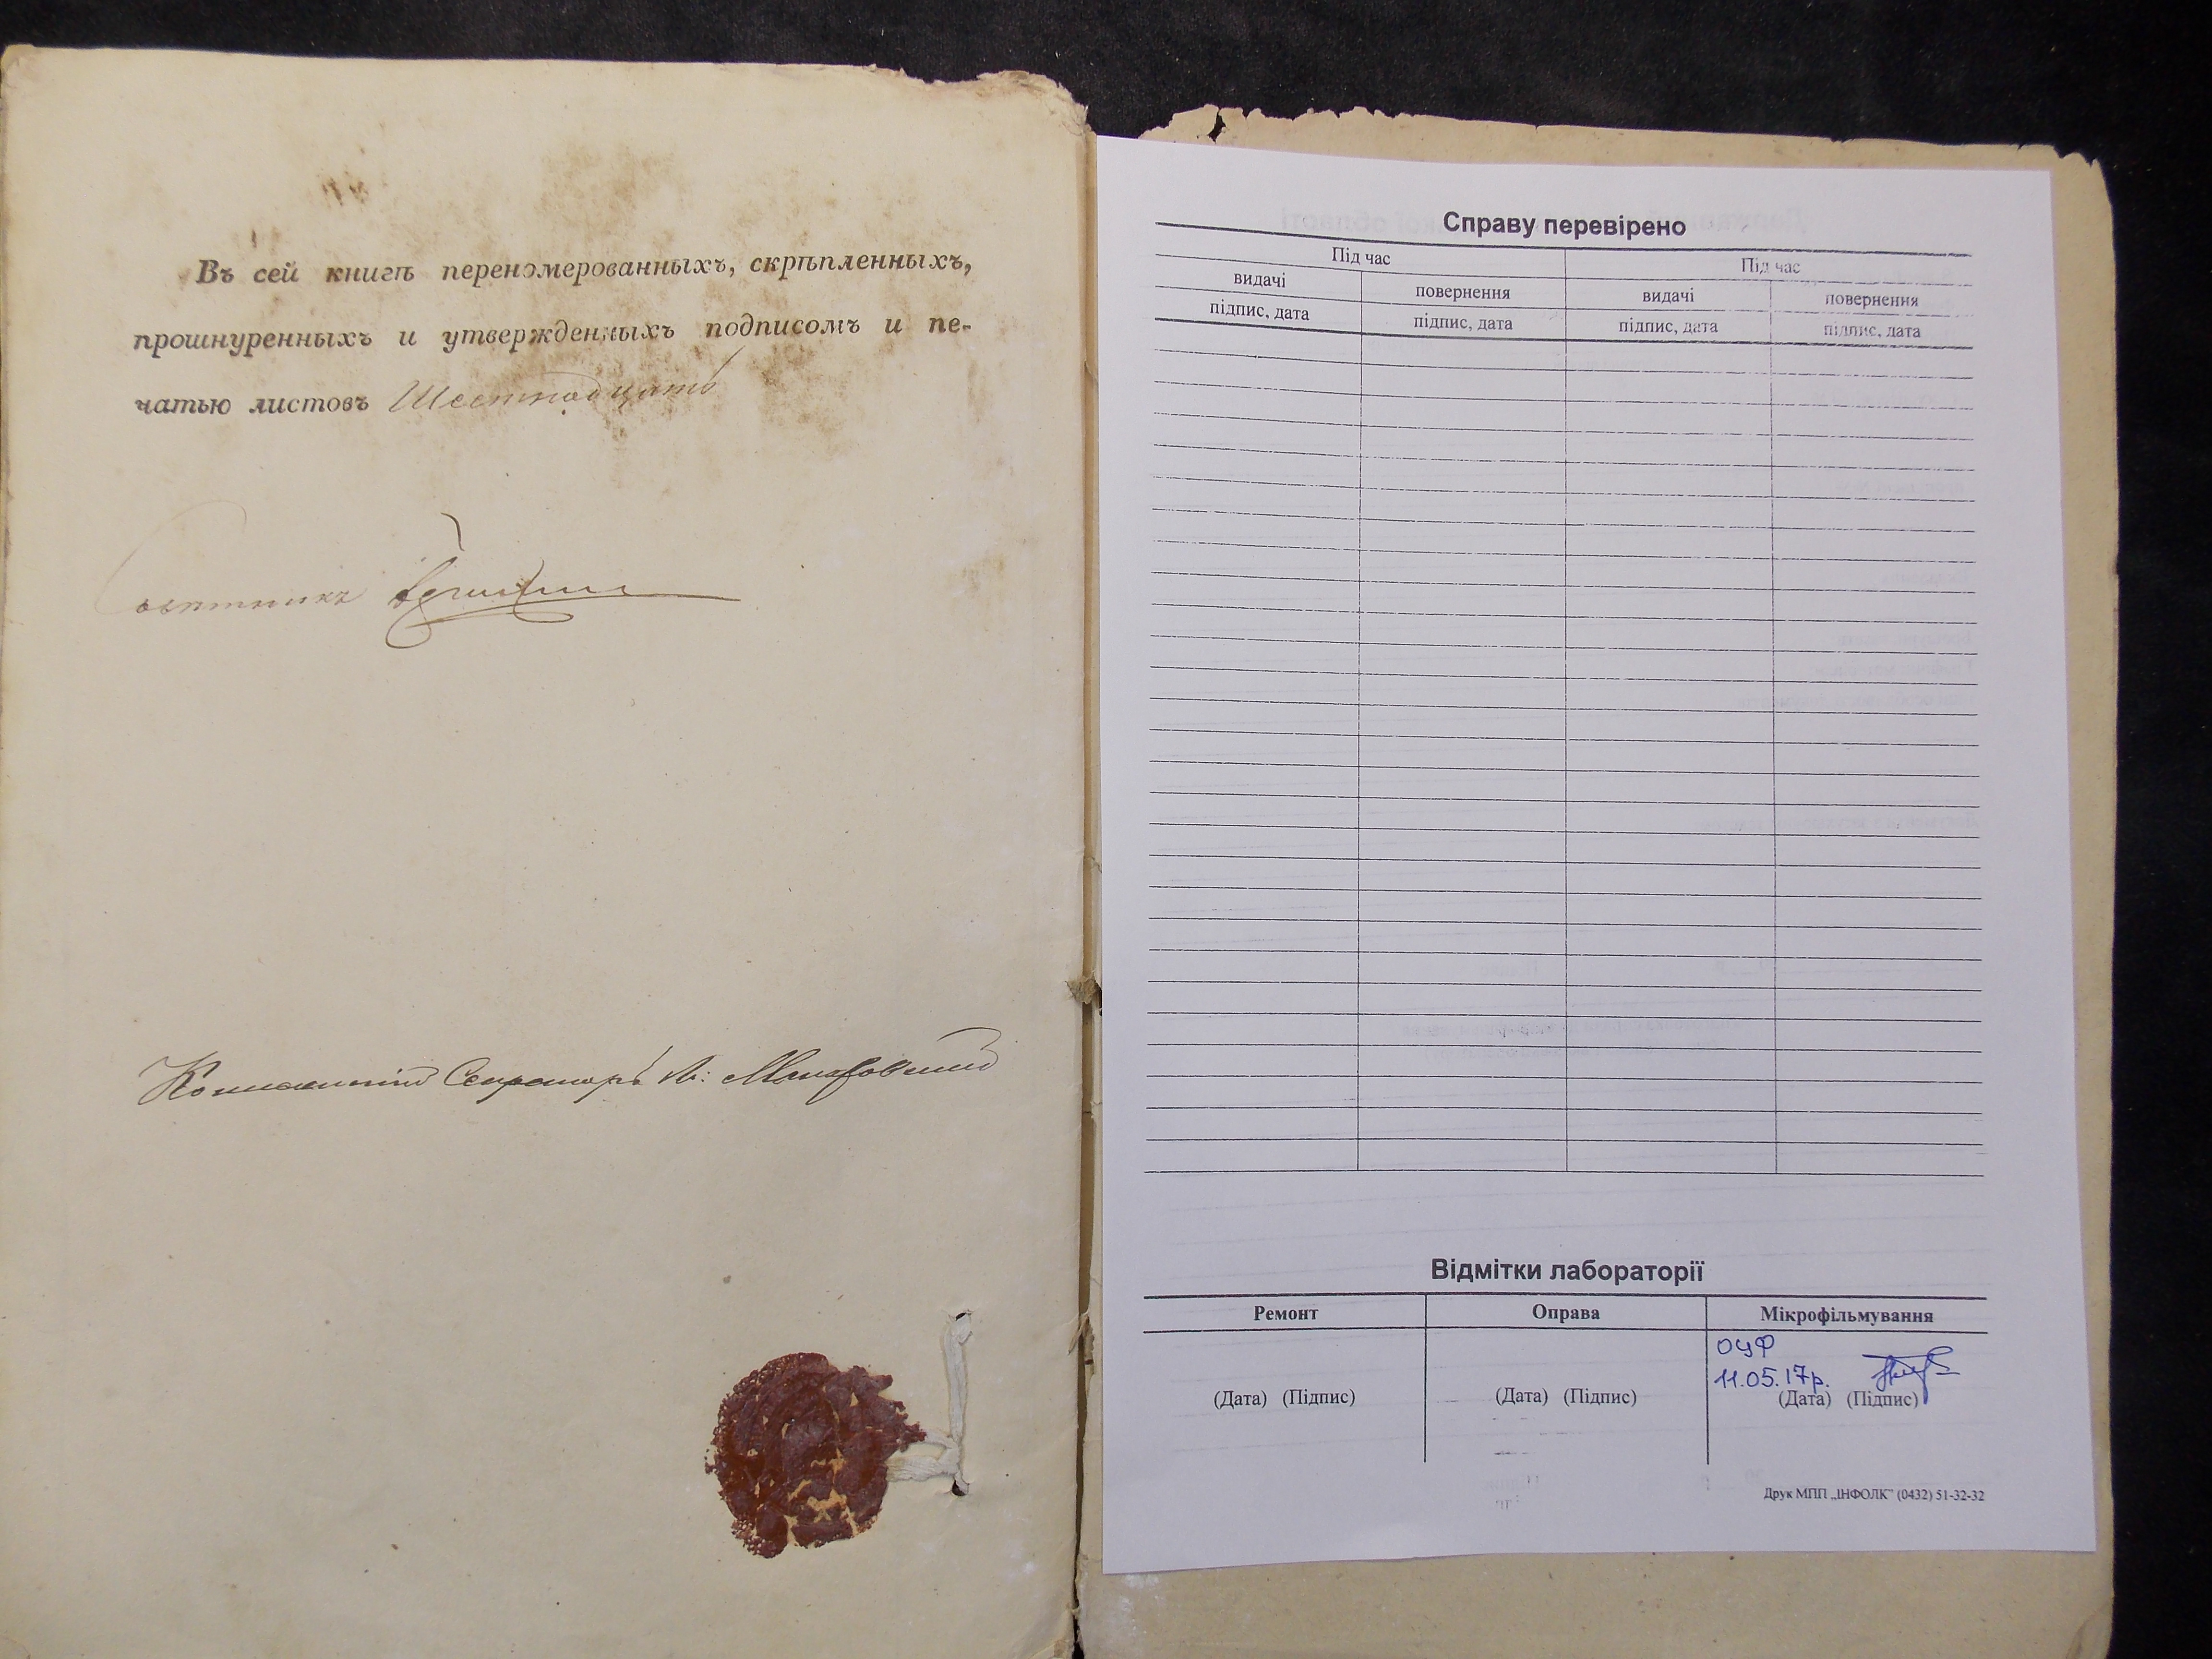 Въ сей книгѣ переномерованныхъ, скрѣпленныхъ,
прошнуренныхъ и утвержденныхъ подписомъ и пе-
чатью листовъ Шестнадцать
Совѣтникъ
Секретарь
Справу перевірено
Під час Під час
видачі повернення видачі повернення
підпис, дата підпис, дата підпис, дата підпис, дата
Відмітки лабораторії
Ремонт Оправа Мікрофільмування
ОЦФ
11.05.17р.
(Дата) (Підпис) (Дата) (Підпис) (Дата) (Підпис)
Друк МПП „ІНФОЛК" (0432) 51-32-32